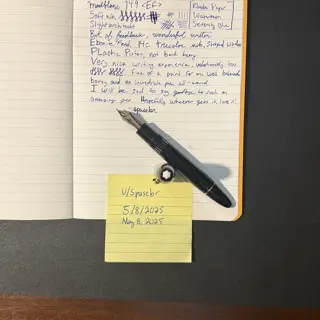 Montblanc 149 <EF>
Rhodia Paper
Waterman
Serenity Blue
Soft nib
Slight
Bit of feedback, wonderful writer
Ebonite Feed,
Plastic Piston, not back heavy
Very nice writing experience, unfortunately too
Fine of a point for me. Well balanced
and an incredible pen all-around
I will be sad to say goodbye to such an
amazing pen. Hopefully whoever gets it, loves it.
u/spuscbr
5/8/2025
May 8, 2025